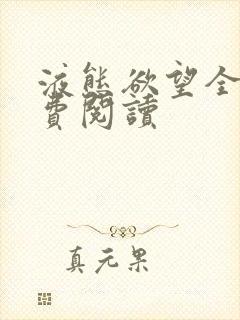 液態欲望全
費閱讀
真元果